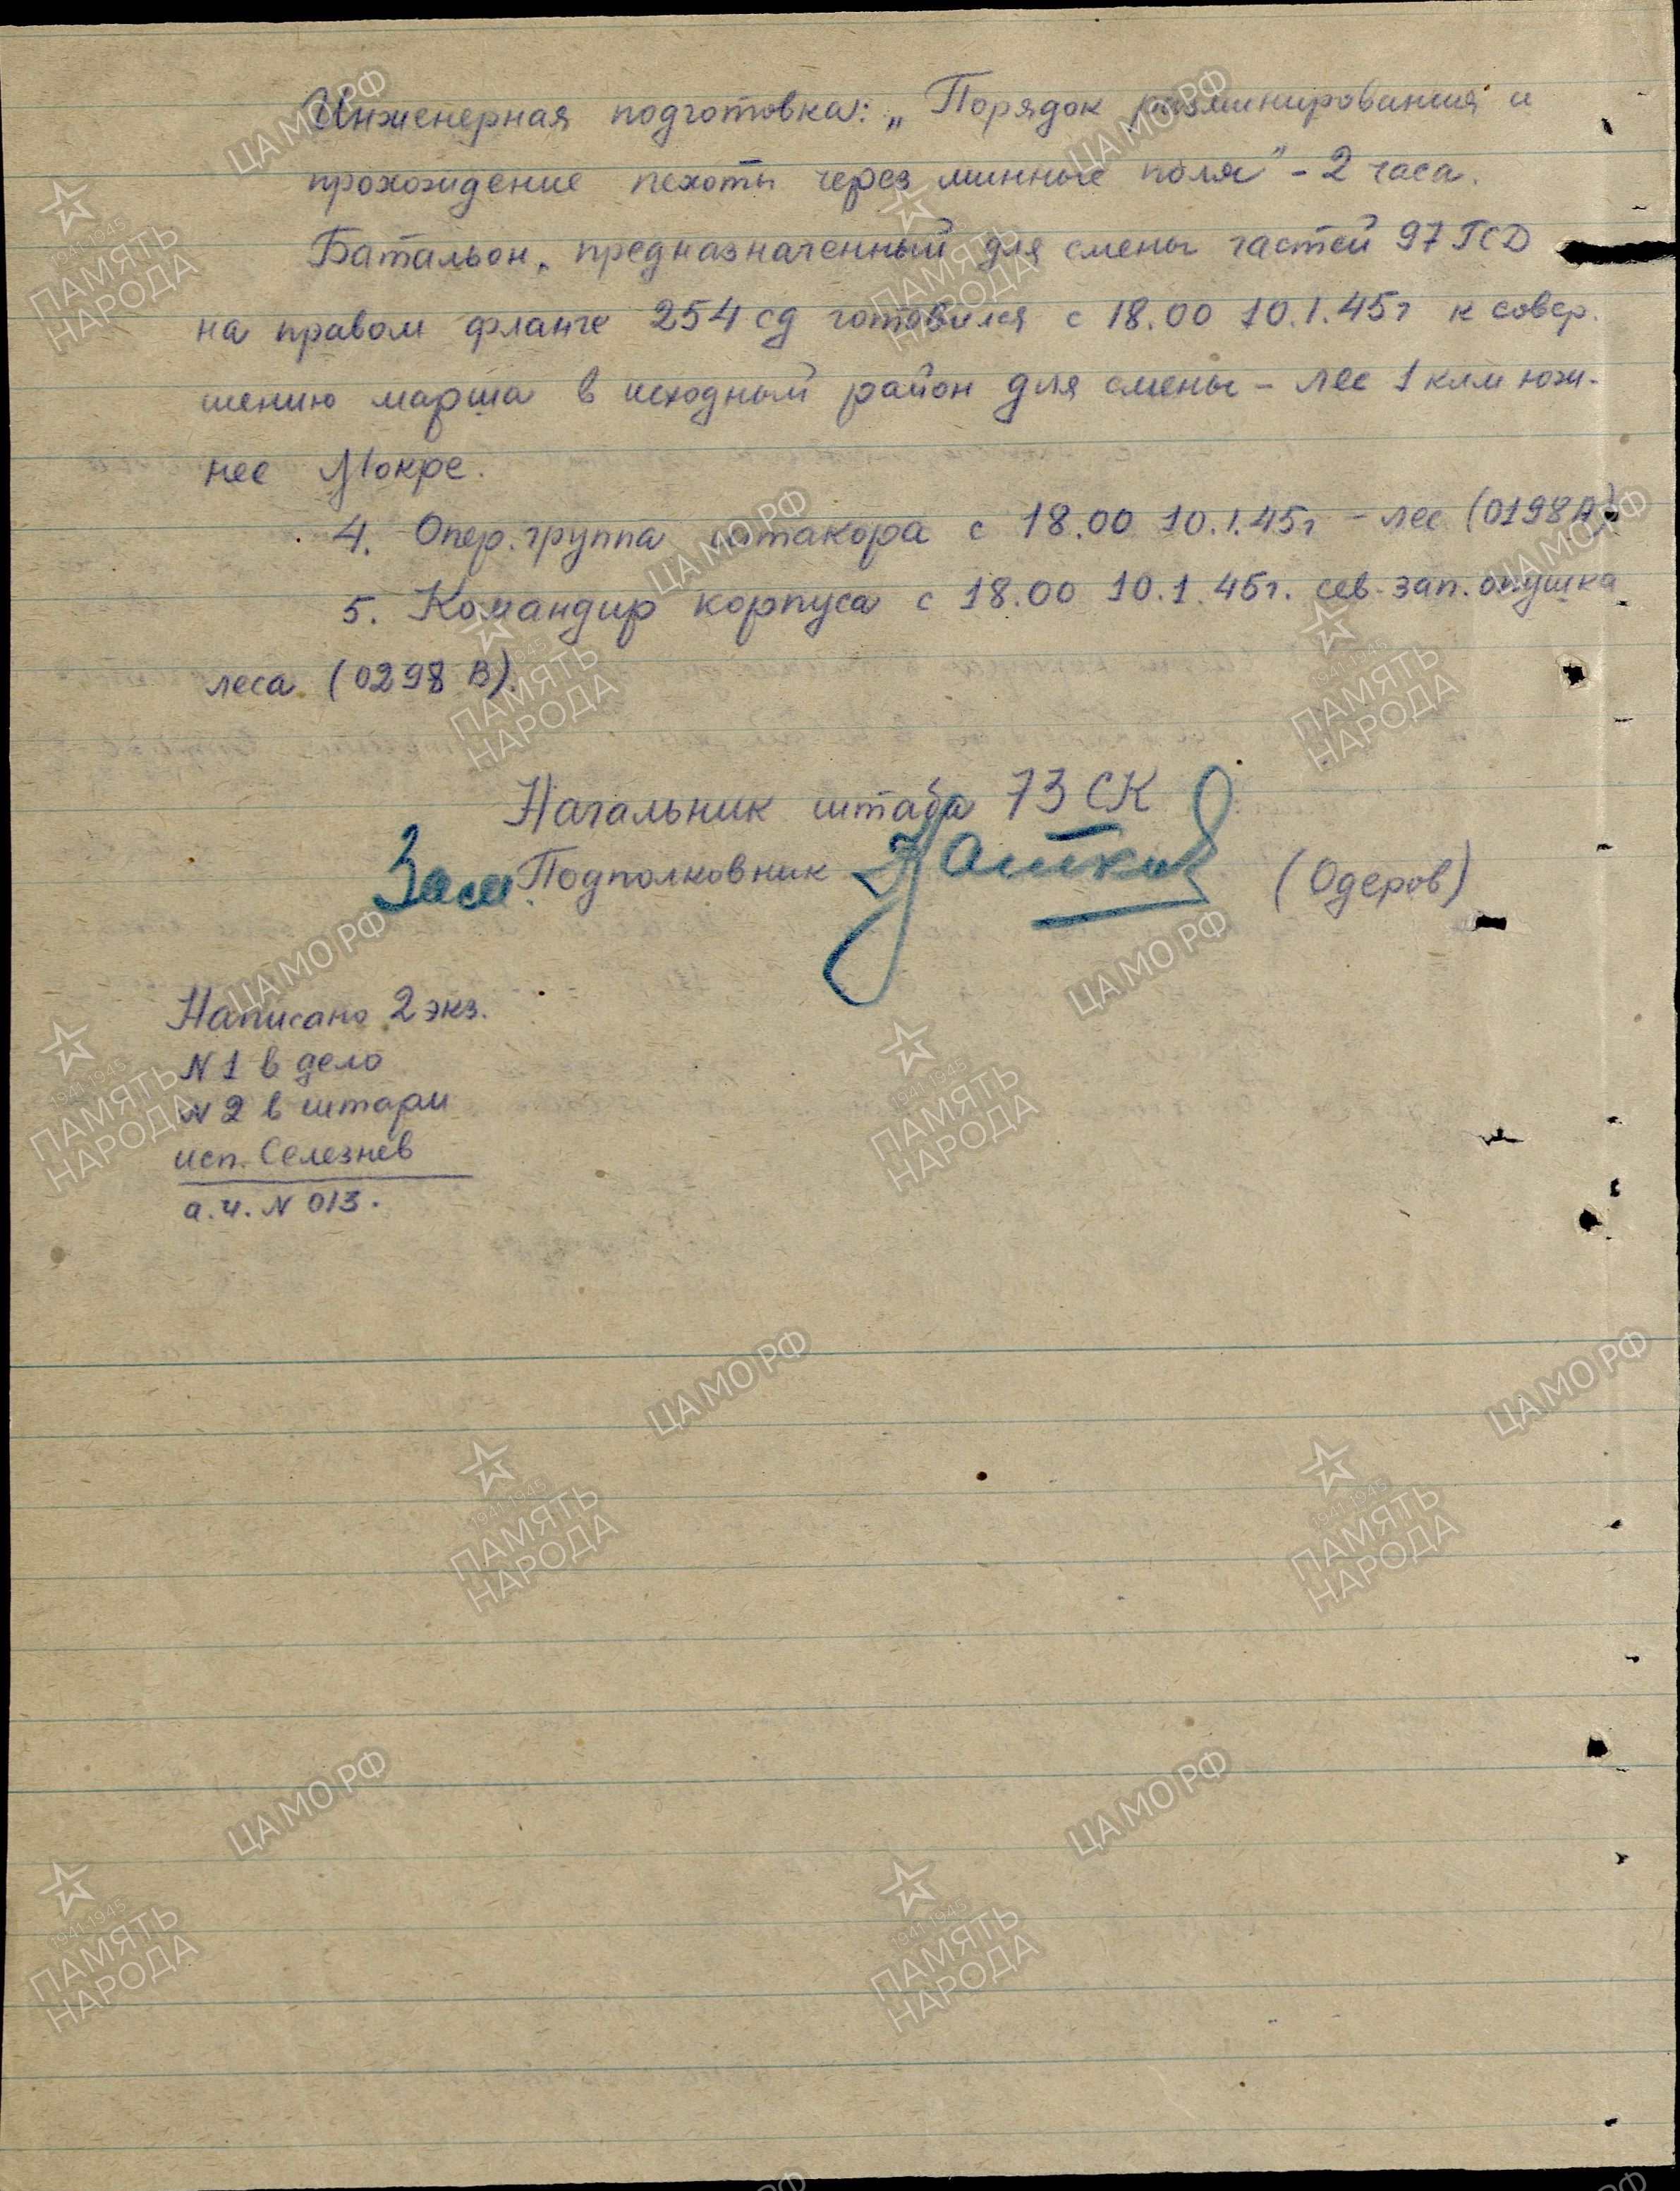 Инженерная подготовка: „Порядок разминирования и
прохождение пехоты через минные поля" – 2 часа.
Батальон, предназначенный для смены частей 97 ГСД
на правом фланге 254 сд готовился с 18.00 10.1.45г к совер-
шению марша в исходный район для смены – лес 1 клм юж-
нее Мокре.
4. Опер.группа штакора с 18.00 10.1.45г – лес (0198А).
5. Командир корпуса с 18.00 10.1.45г. сев.-зап. опушка
леса (0298 В).
Начальник штаба 73 СК
Зам. Подполковник (Одеров)
Написано 2 экз.
N 1 в дело
N 2 в штарм
исп. Селезнев
а.ч. N 013.
ЦА МО РФ
1941-1945
ПАМЯТЬ
НАРОДА